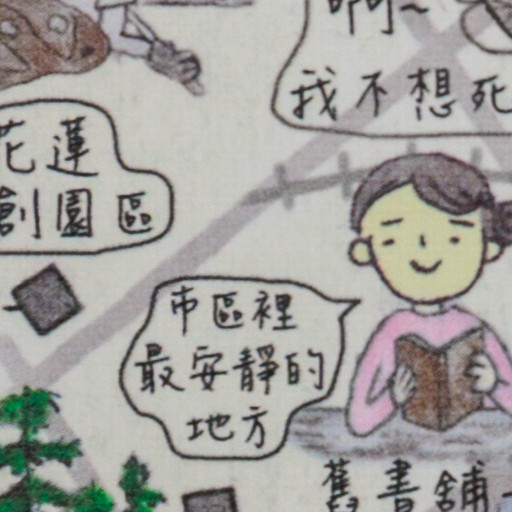 啊~
我不想死
花蓮
創園區
市區裡
最安靜的
地方
舊書舖